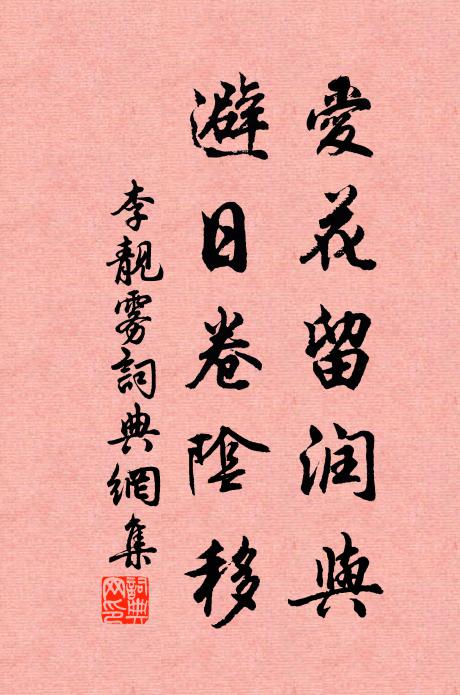 愛花留润與
避日卷陰移
李靚雾詞典網集
詞典
网印